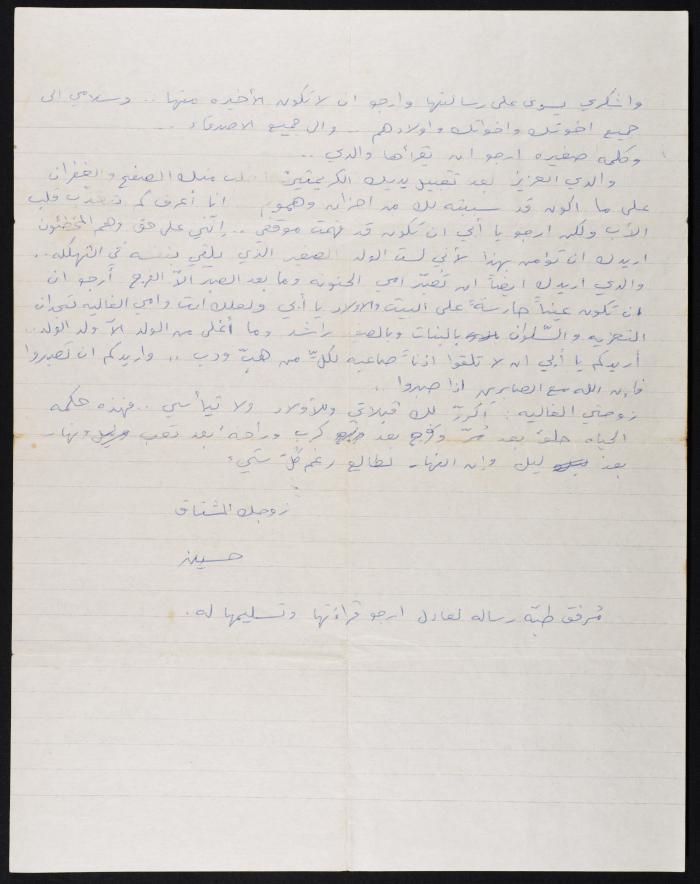 واشكري يسرى على رسالتها وارجو ان لا تكون الأخيره منها .. وسلامي الى
جميع اخوتك واخواتك واولادهم .. والى جميع الاصدقاء ..
وكلمه صغيره ارجو ان تقرأها والدي ..
والدي العزيز بعد تقبيل يديك الكريمتين اطلب منك الصفح والغفران
على ما اكون قد سببته لك من احزان وهموم انا أعرف كم تعذب قلب
الأب ولكن ارجو يا أبي ان تكون قد فهمت موقفي .. إنني على حق وهم المخطئون
اريدك ان تؤمن بهذا لأني لست الولد الصغير الذي يلقي بنفسه في التهلكه ..
والدي اريدك ايضاً ان تصبّر امي الحنونه وما بعد الصبر الاّ الفرج أرجو ان
ان تكون عيناً حارسةً على البيت والاولاد يا أبي ولعلك انت وامي الغاليه تجدان
التعزيه والسّلوان بالبنات وبالصغير راشد وما أغلى من الولد الاّ ولد الولد ..
أريدكم يا أبي ان لا تلقوا اذناً صاغيه لكلّ من هبّ ودب .. واريدكم ان تصبروا
فإن الله مع الصابرين اذا صبروا .
زوجتي الغاليه : أكررّ لك قبلاتي وللأولاد ولا تيأسي .. فهذه حكمه
الحياه حلوٌ بعد مُرّ وفرج بعد كرب وراحه بعد تعب ونهار
بعد ليل وإن النهار لطالع رغم كلّ شيء .
زوجك المشتاق
حسين
مُرفق طيّه رساله لعادل ارجو قراءتها وتسليمها له .